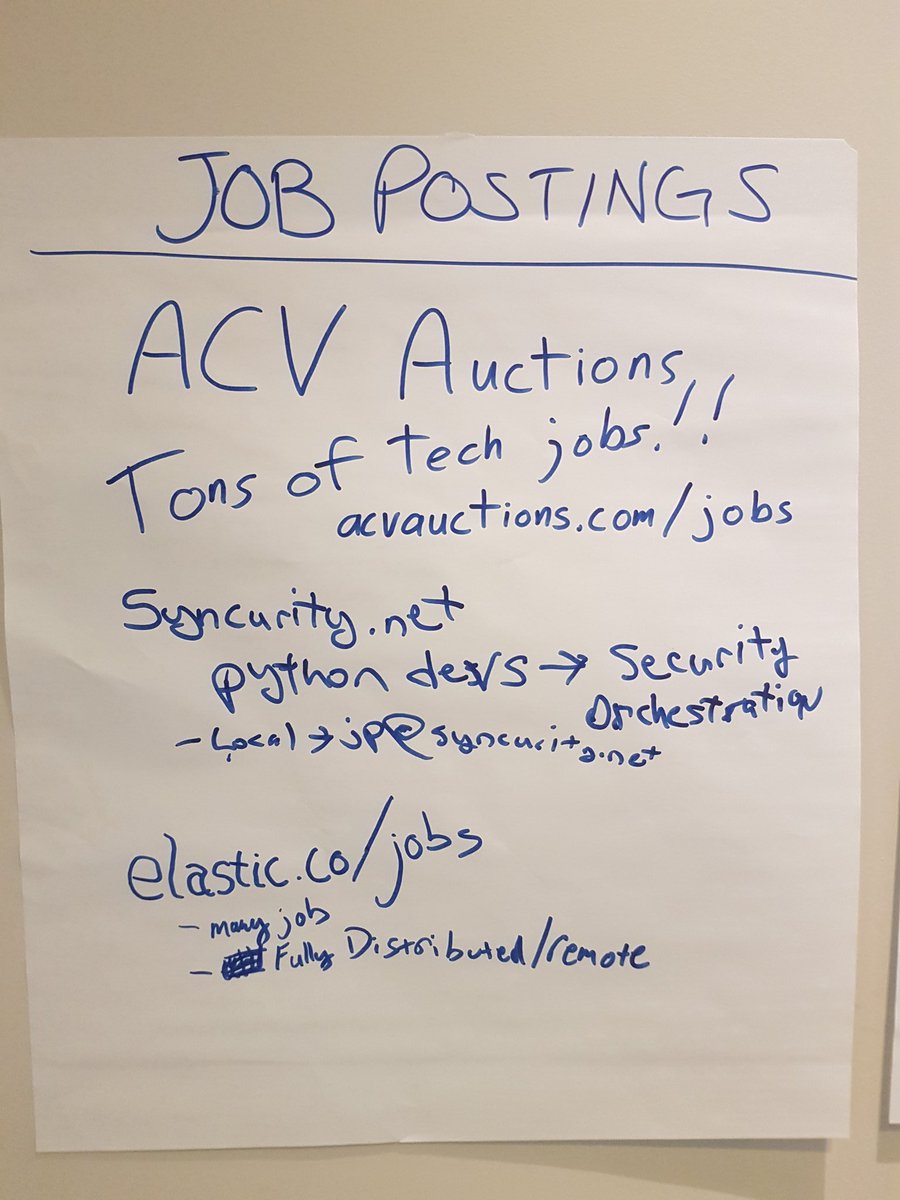 JOB POSTINGS
ACV Auctions
Tons of tech jobs!!
acvauctions.com/jobs
Syncurity.net
python devs → Security
Orchestration
- Local → jp@syncurity.net
elastic.co/jobs
- many job
- Fully Distributed/remote